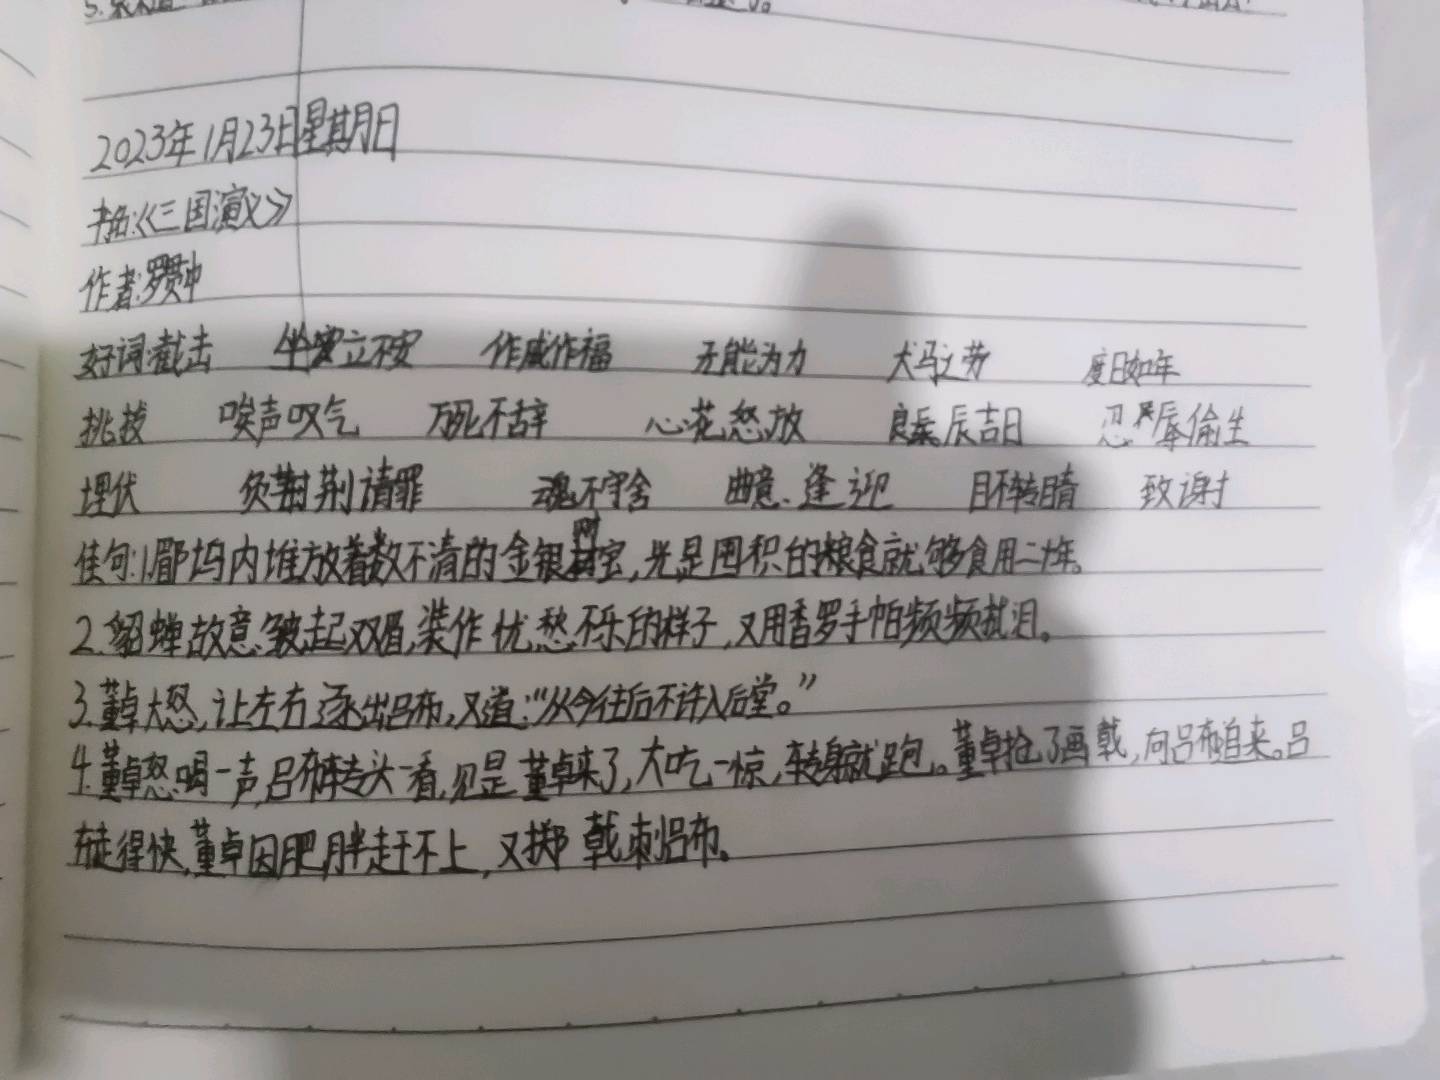 2023年1月23日星期日
书名:《三国演义》
作者:罗贯中
好词:截击 坐立不安 作威作福 无能为力 犬马之劳 度日如年
挑拨 唉声叹气 万死不辞 心花怒放 良辰吉日 忍辱偷生
埋伏 负荆请罪 魂不守舍 曲意逢迎 目不转睛 致谢
佳句:1.郿坞内堆放着数不清的金银财宝,光是囤积的粮食就够食用二十年。
2.貂蝉故意皱起双眉,装作忧愁不乐的样子,又用香罗手帕频频拭泪。
3.董卓大怒,让左右逐出吕布,又道:“从今往后不许入后堂。”
4.董卓怒喝一声,吕布转头一看,见是董卓来了,大吃一惊,转身就跑。董卓抢了画戟,向吕布追来。吕
布走得快,董卓因肥胖赶不上,又掷戟刺吕布。